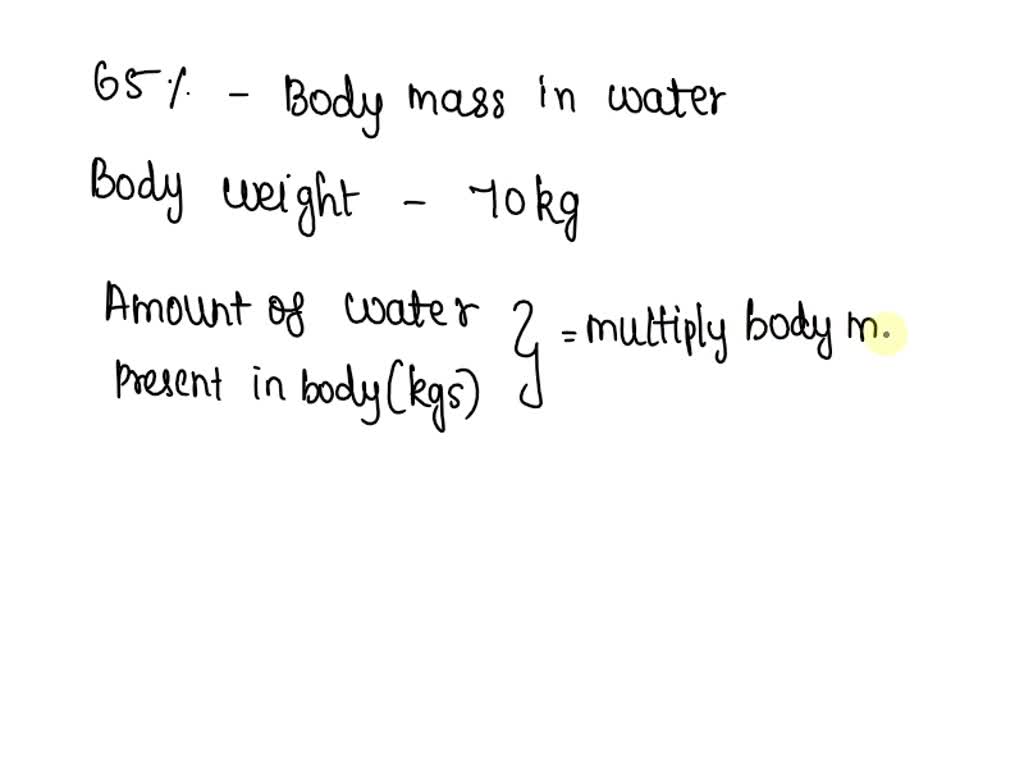 65% - Body mass in water
Body weight - 70kg
Amount of water
present in body (kgs)
} = multiply body m.